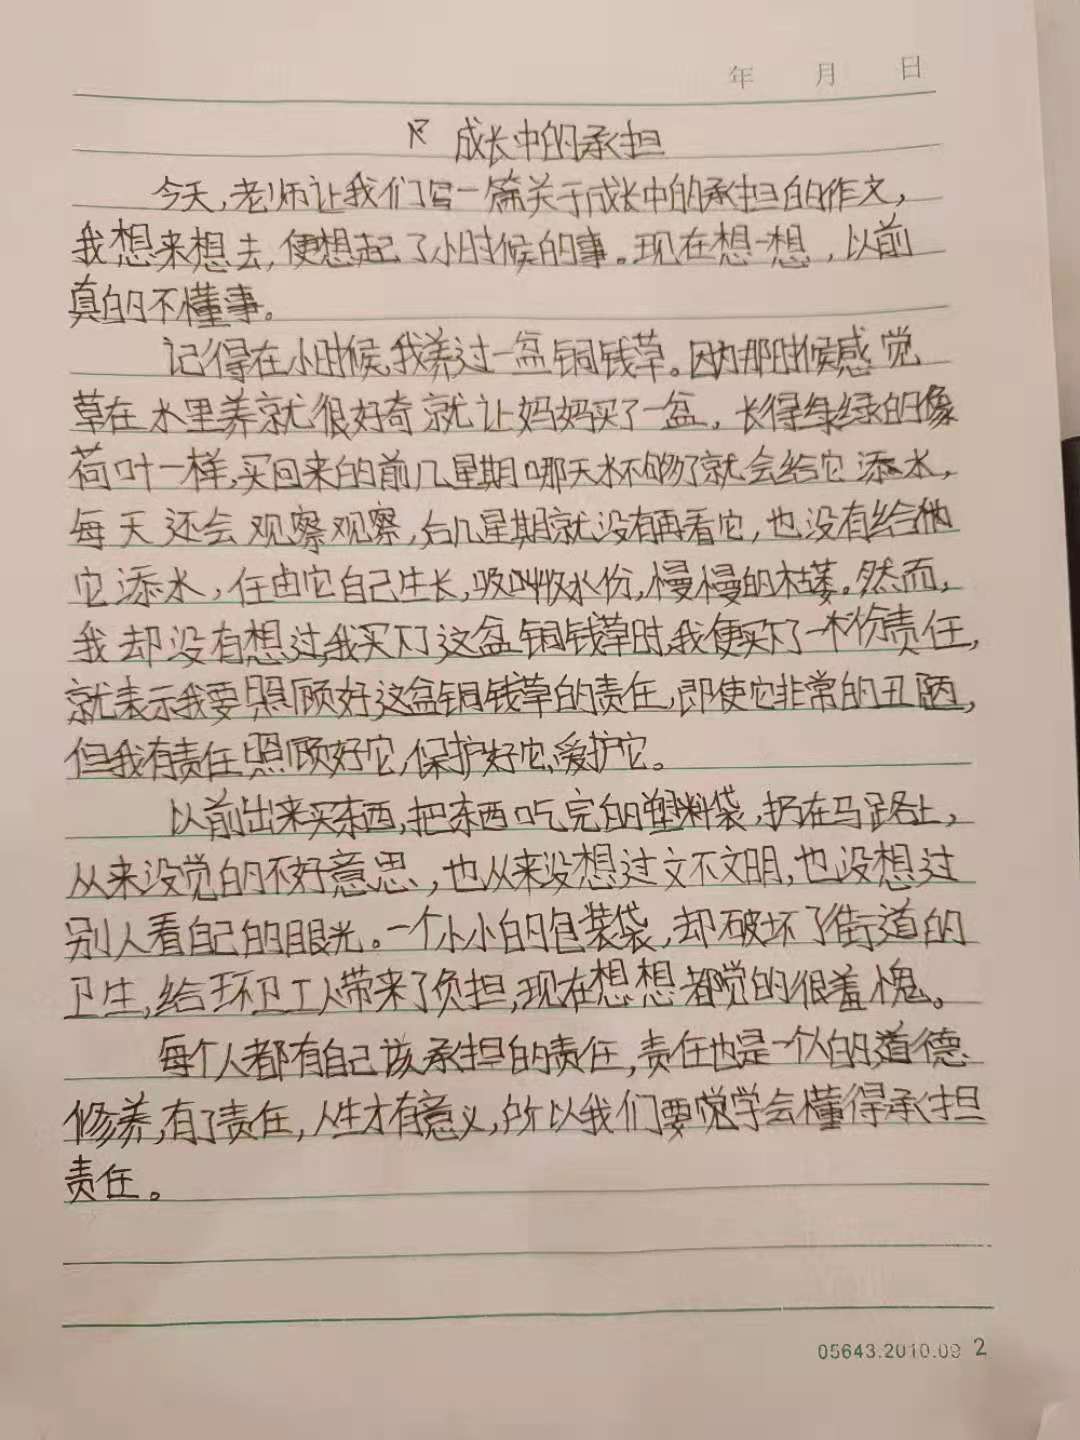 年 月 日
成长中的承担
今天,老师让我们写一篇关于成长中的承担的作文,
我想来想去,便想起了小时候的事。现在想一想,以前
真的不懂事。
记得在小时候,我养过一盆铜钱草。因为那时候感觉
草在水里养就很好奇就让妈妈买了一盆,长得绿绿的像
荷叶一样,买回来的前几星期哪天水不够了就会给它添水,
每天还会观察观察,后几星期就没有再看它,也没有给
它添水,任由它自己生长,吸收水份,慢慢的枯萎。然而,
我却没有想过,我买下了这盆铜钱草时,我便买下了一份责任,
就表示我要照顾好这盆铜钱草的责任,即使它非常的丑陋,
但我有责任照顾好它,保护好它,爱护它。
以前出来买东西,把东西吃完的塑料袋,扔在马路上,
从来没觉的不好意思,也从来没想过文不文明,也没想过
别人看自己的眼光。一个小小的包装袋,却破坏了街道的
卫生,给环卫工人带来了负担,现在想想都觉的很羞愧。
每个人都有自己该承担的责任,责任也是一个人的道德
修养,有了责任,人生才有意义,所以我们要学会懂得承担
责任。
05643.2010.09 2